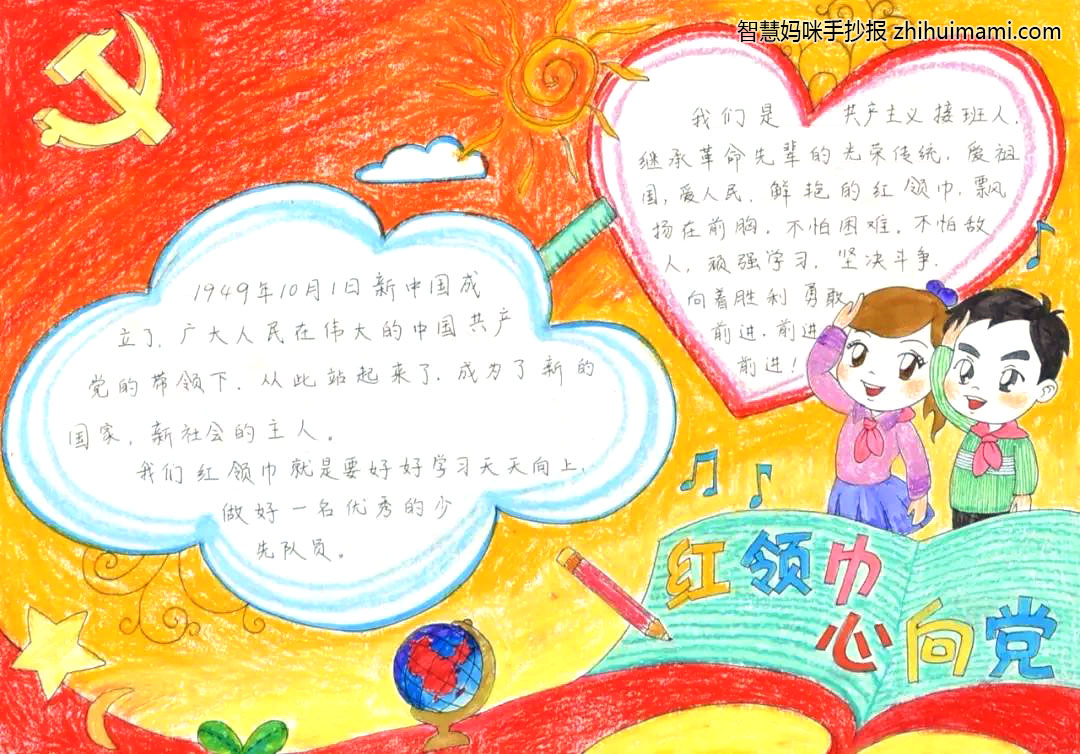 智慧妈咪手抄报 zhihuimami.com
我们是 共产主义接班人.
继承革命先辈的光荣传统.爱祖
国,爱人民.鲜艳的红领巾.飘
扬在前胸.不怕困难.不怕敌
人,顽强学习.坚决斗争.
向着胜利勇敢
前进.前进
前进!
1949年10月1日新中国成
立了.广大人民在伟大的中国共产
党的带领下.从此站起来了.成为了新的
国家,新社会的主人。
我们红领巾就是要好好学习天天向上.
做好一名优秀的少
先队员。
红领巾
心向党